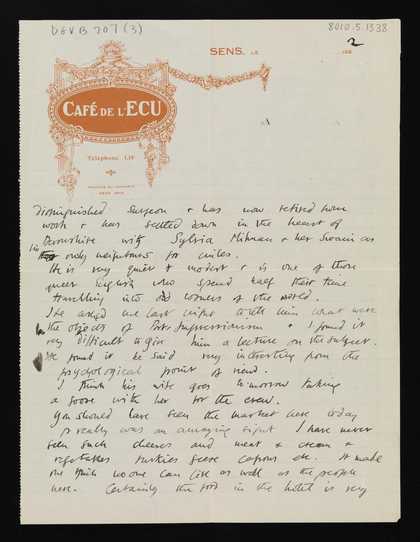 DEVB 707 (3)
8010.5.1338
SENS, LE
192
2
CAFÉ DE L'ECU
Téléphone 1.19
Distinguished Surgeon & has now retired from
work & has settled down in the heart of
Devonshire with Sylvia & her swain as
his only neighbours for miles.
He is very quiet & modest & is one of those
queer English who spend half their time
travelling into odd corners of the world.
He asked me last night to tell him what were
the objects of Post Impressionism & I found it
very difficult to give him a lecture on the subject.
He found it he said very interesting from the
psychological point of view.
I think his wife goes tomorrow taking
a goose with her for the crew.
You should have seen the market here today
it really was an amazing sight I have never
seen such cheeses and meat & cream &
vegetables turkies geese capons etc. It made
one think no one can live as well as the people
here. Certainly the food in the hotel is very